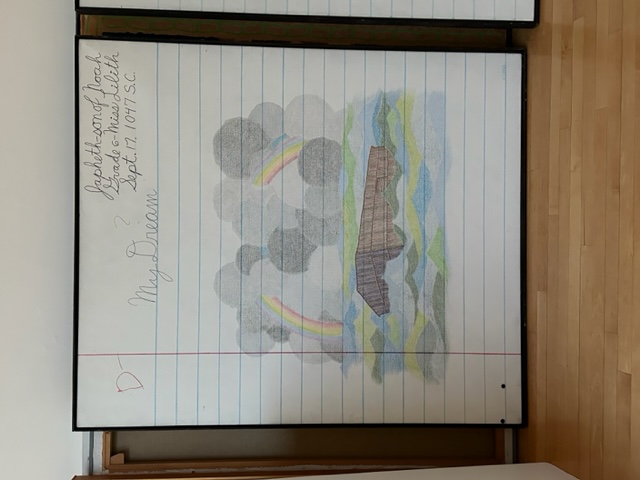 Japheth-son of Noah
Grade 6-Miss Lilith
Sept. 17. 1047 S.C.
D-
?
My Dream